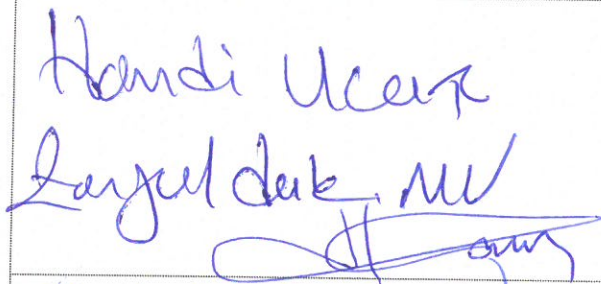 Hamdi Uçar
Zonguldak MV